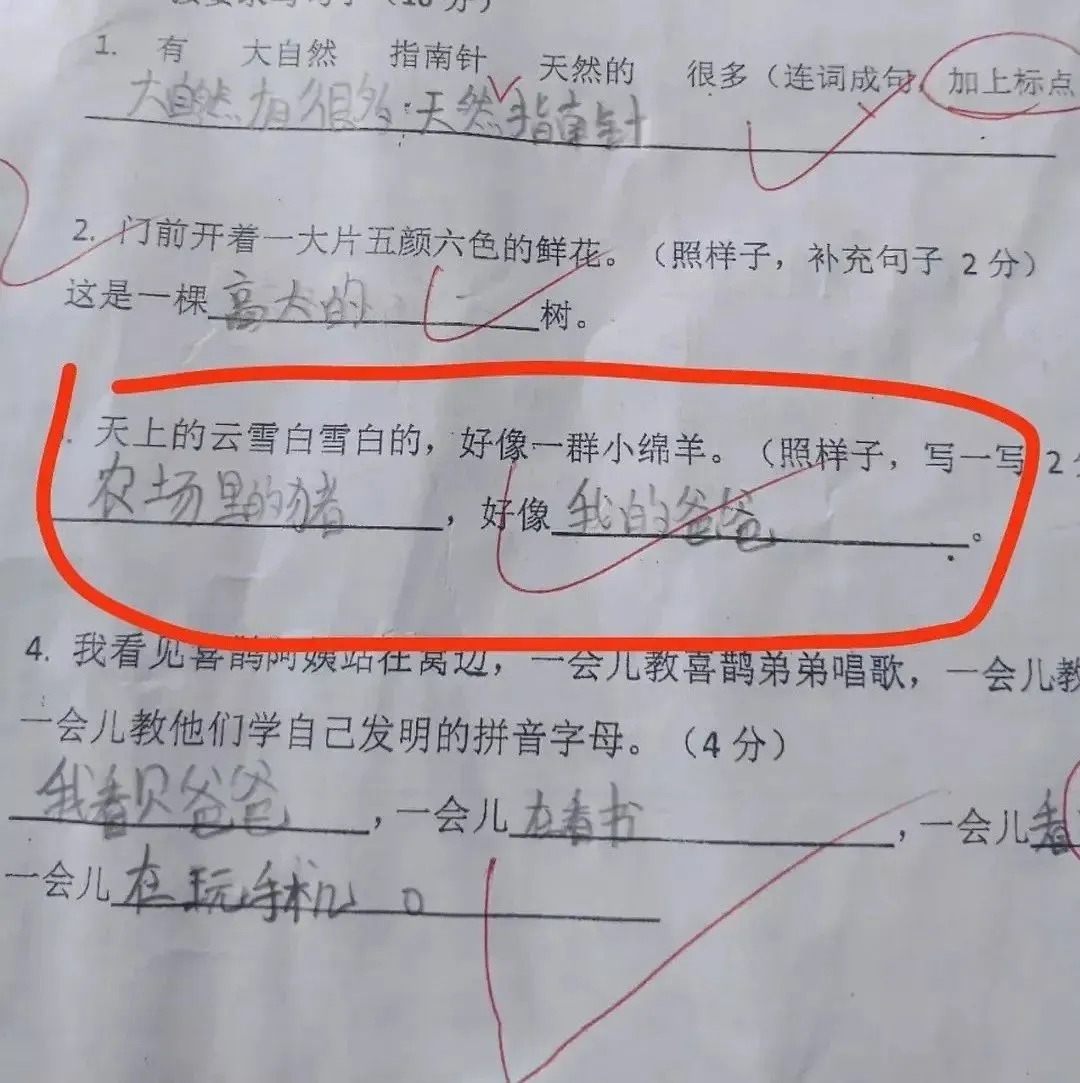 1. 有 大自然 指南针 天然的 很多（连词成句，加上标点
大自然有很多天然指南针
2. 门前开着一大片五颜六色的鲜花。（照样子，补充句子 2分）
这是一棵高大的树。
天上的云雪白雪白的，好像一群小绵羊。（照样子，写一写 2分
农场里的猪，好像我的爸爸。
4. 我看见喜鹊阿姨站在窝边，一会儿教喜鹊弟弟唱歌，一会儿教
一会儿教他们学自己发明的拼音字母。（4分）
我看见爸爸，一会儿在看书，一会儿看
一会儿在玩手机。